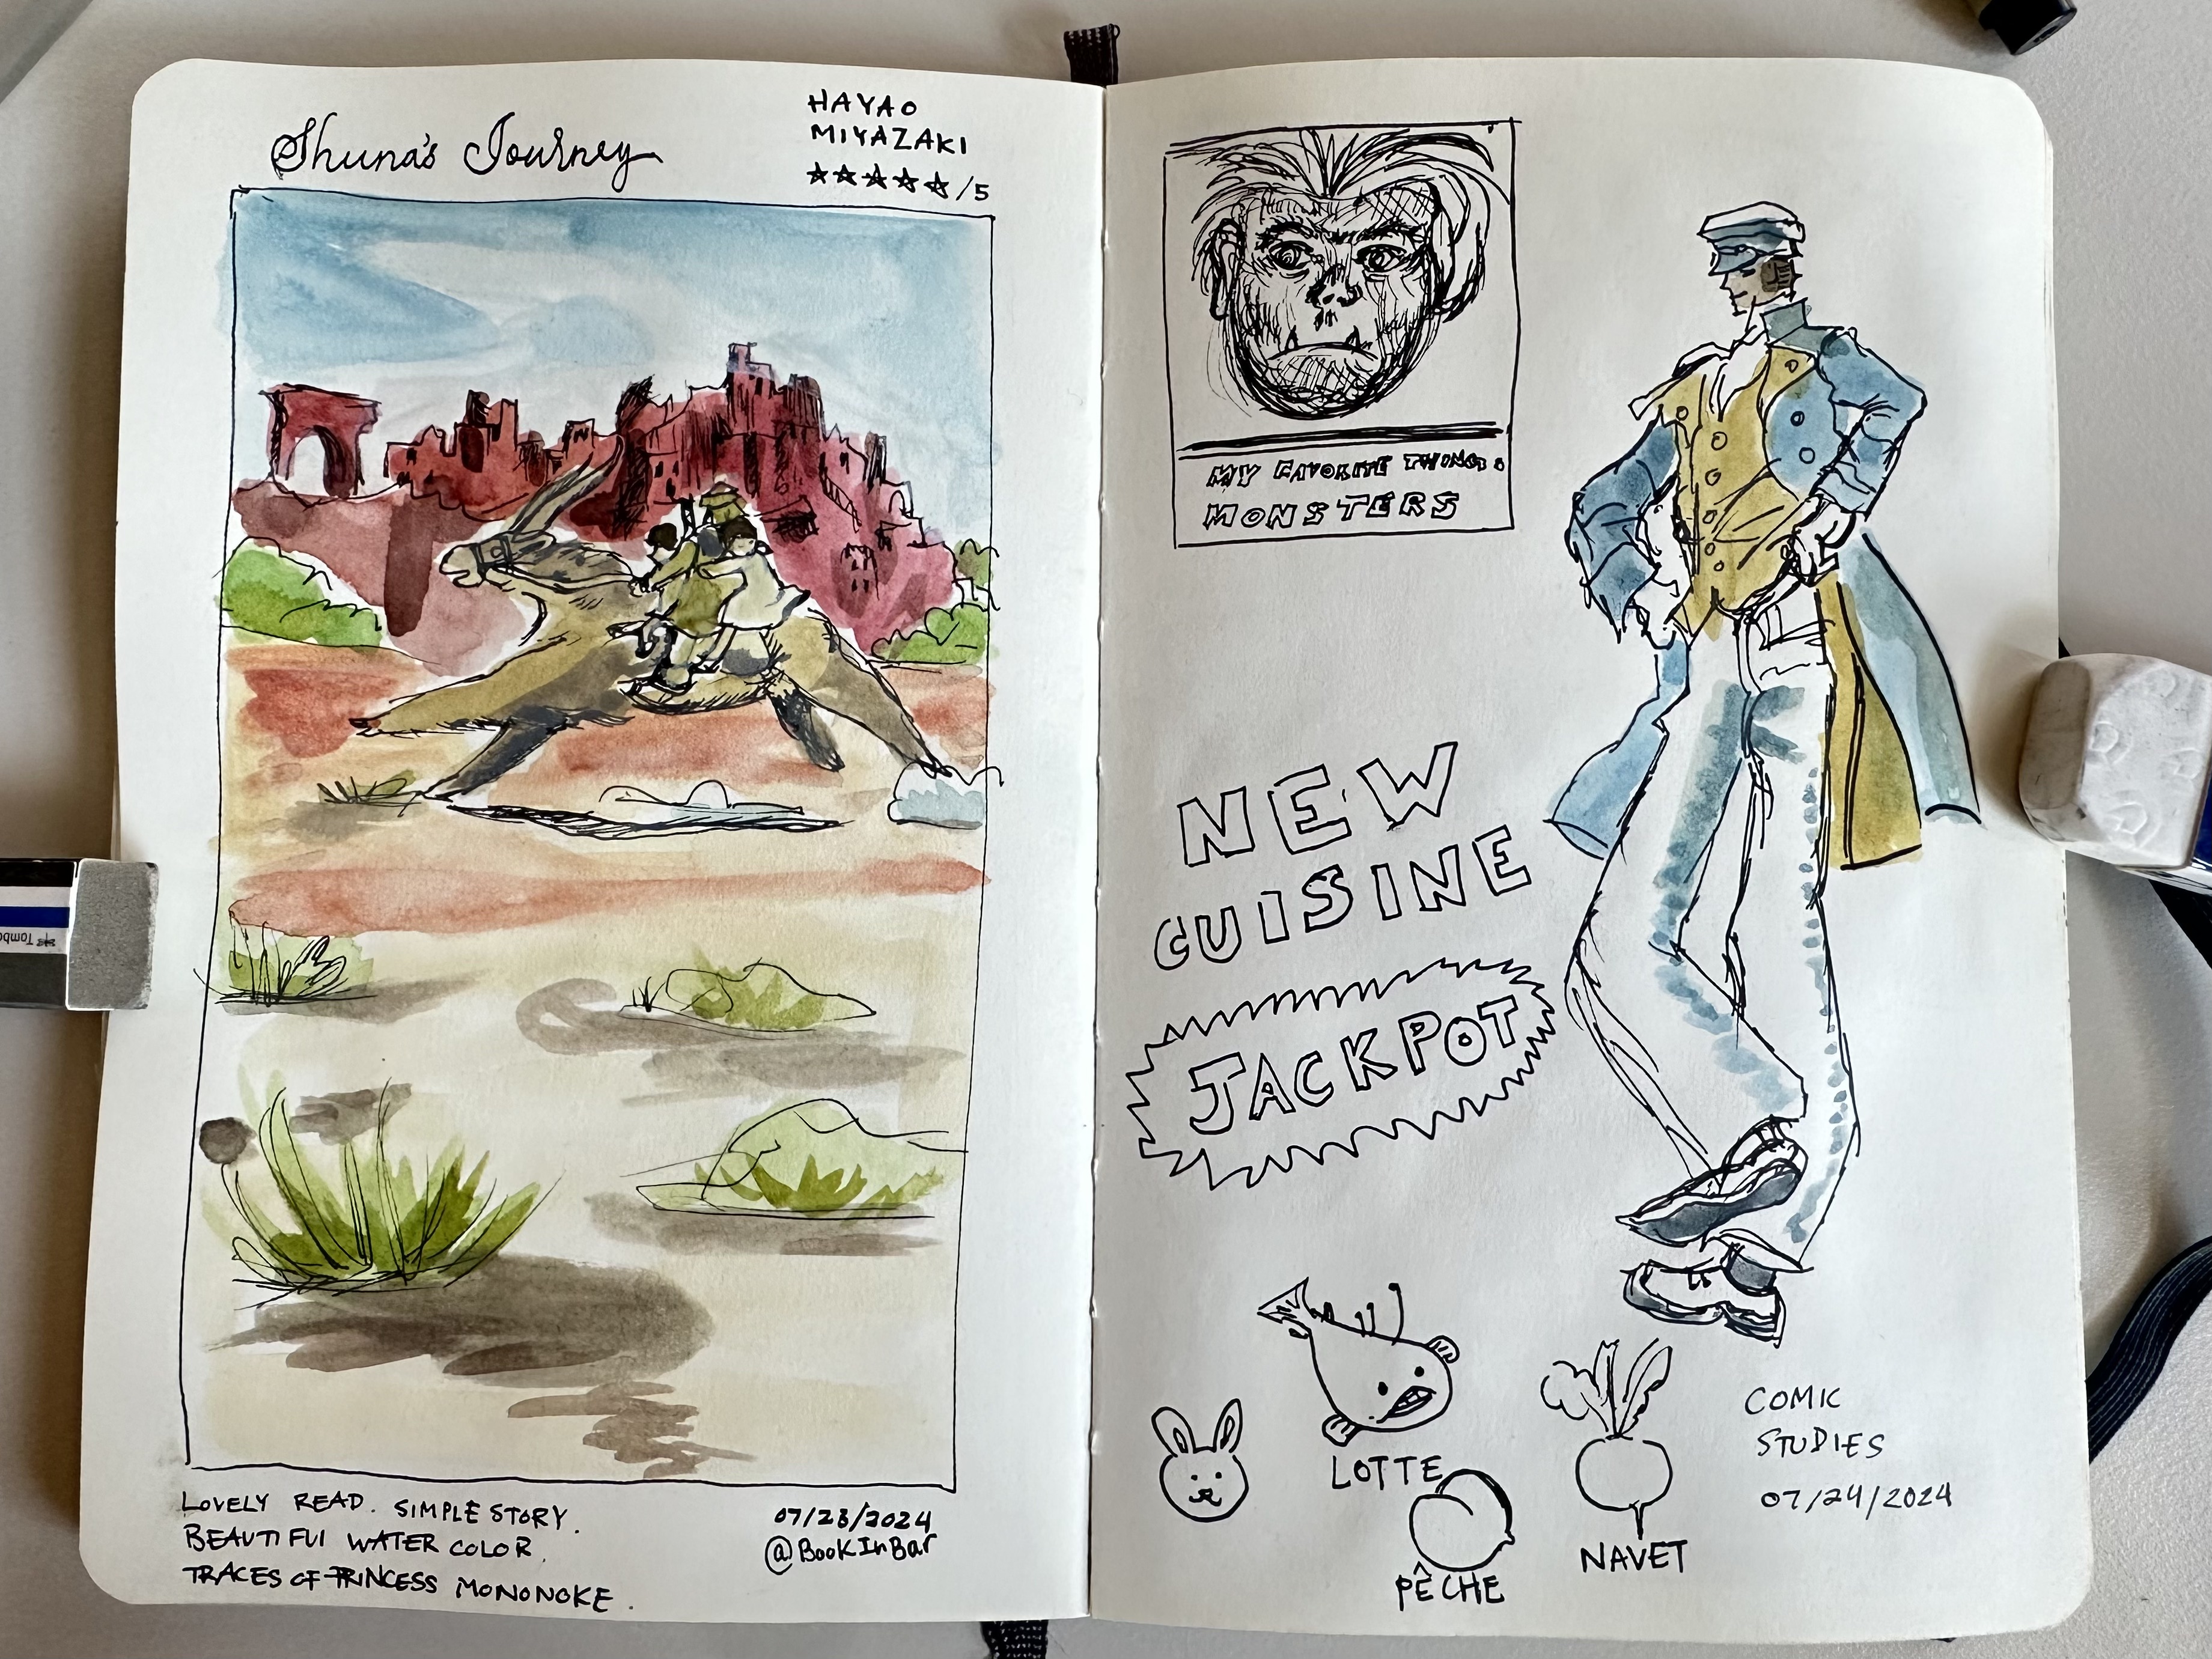 Shuna's Journey
HAYAO
MIYAZAKI
★★★★★/5
LOVELY READ. SIMPLE STORY.
BEAUTIFUL WATER COLOR.
TRACES OF PRINCESS MONONOKE.
07/23/2024
@BookInBar
MY FAVORITE THING:
MONSTERS
NEW
CUISINE
JACKPOT
LOTTE
PÊCHE
NAVET
COMIC
STUDIES
07/24/2024